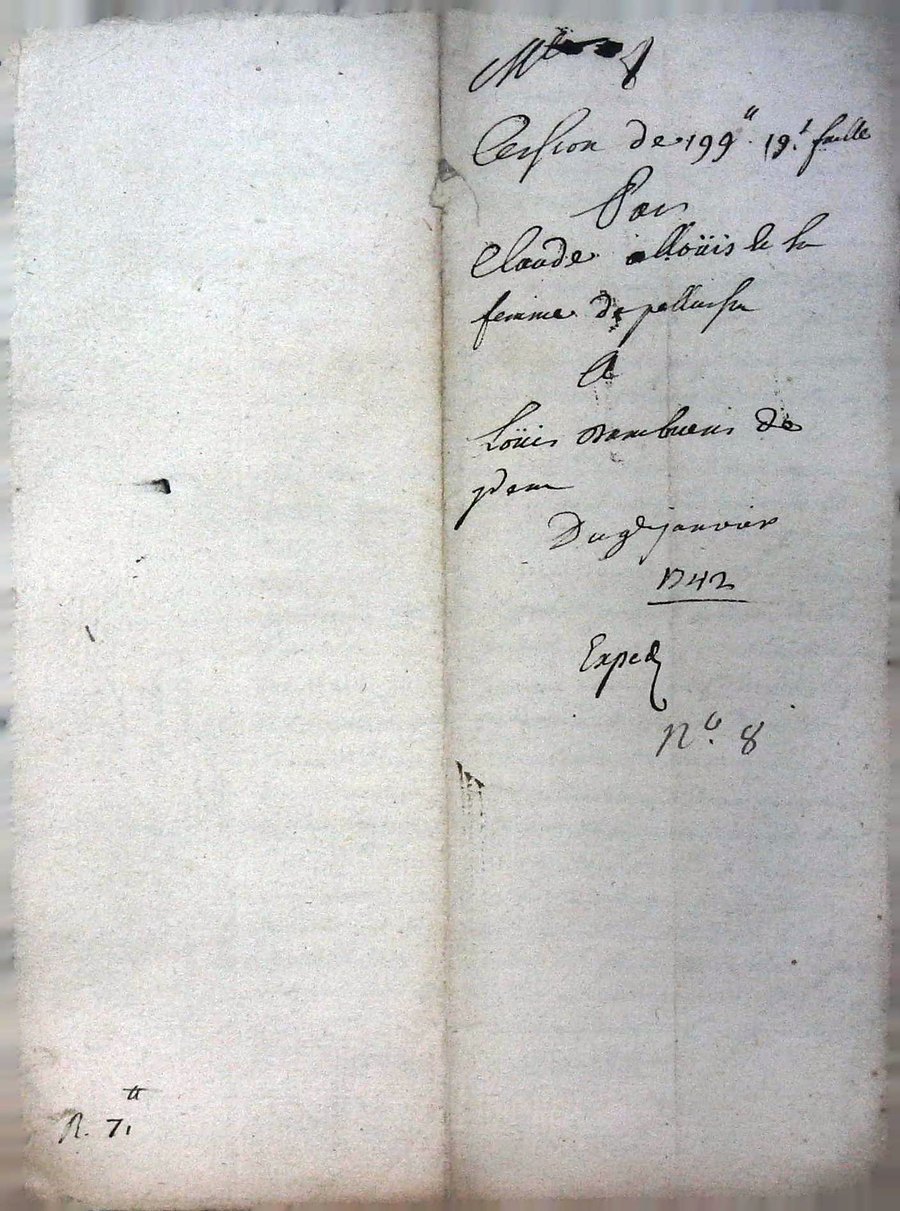 Cession de 199ᵗᵗ 19ˢ faitte
Par
Claude alloüis & sa
femme de
A
Loüis de
Du 9e janvier
1742
Exped
nº. 8
R. 7ᵗᵗ